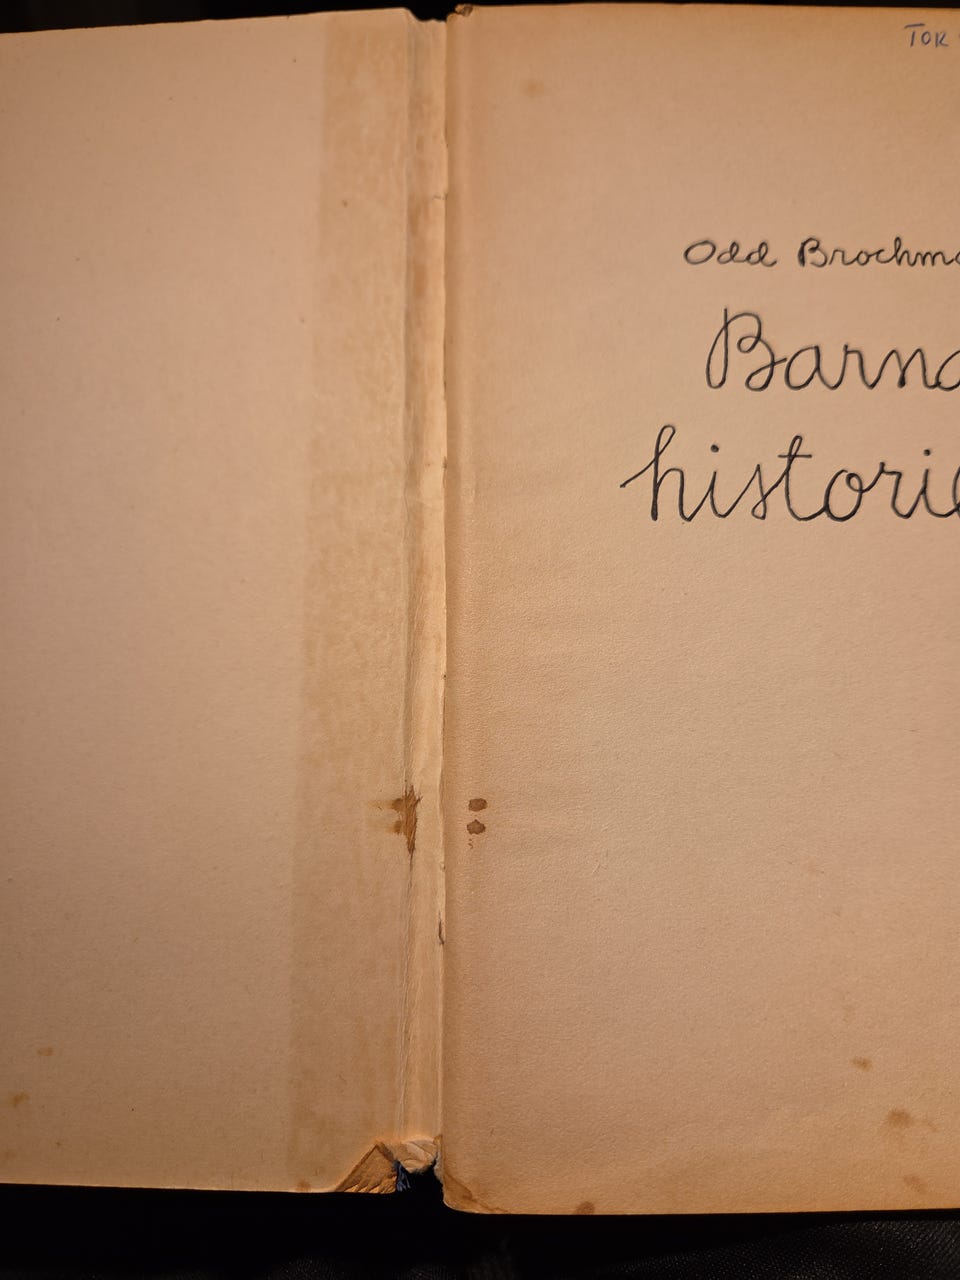 TOR
Odd Brochma
Barna
historie